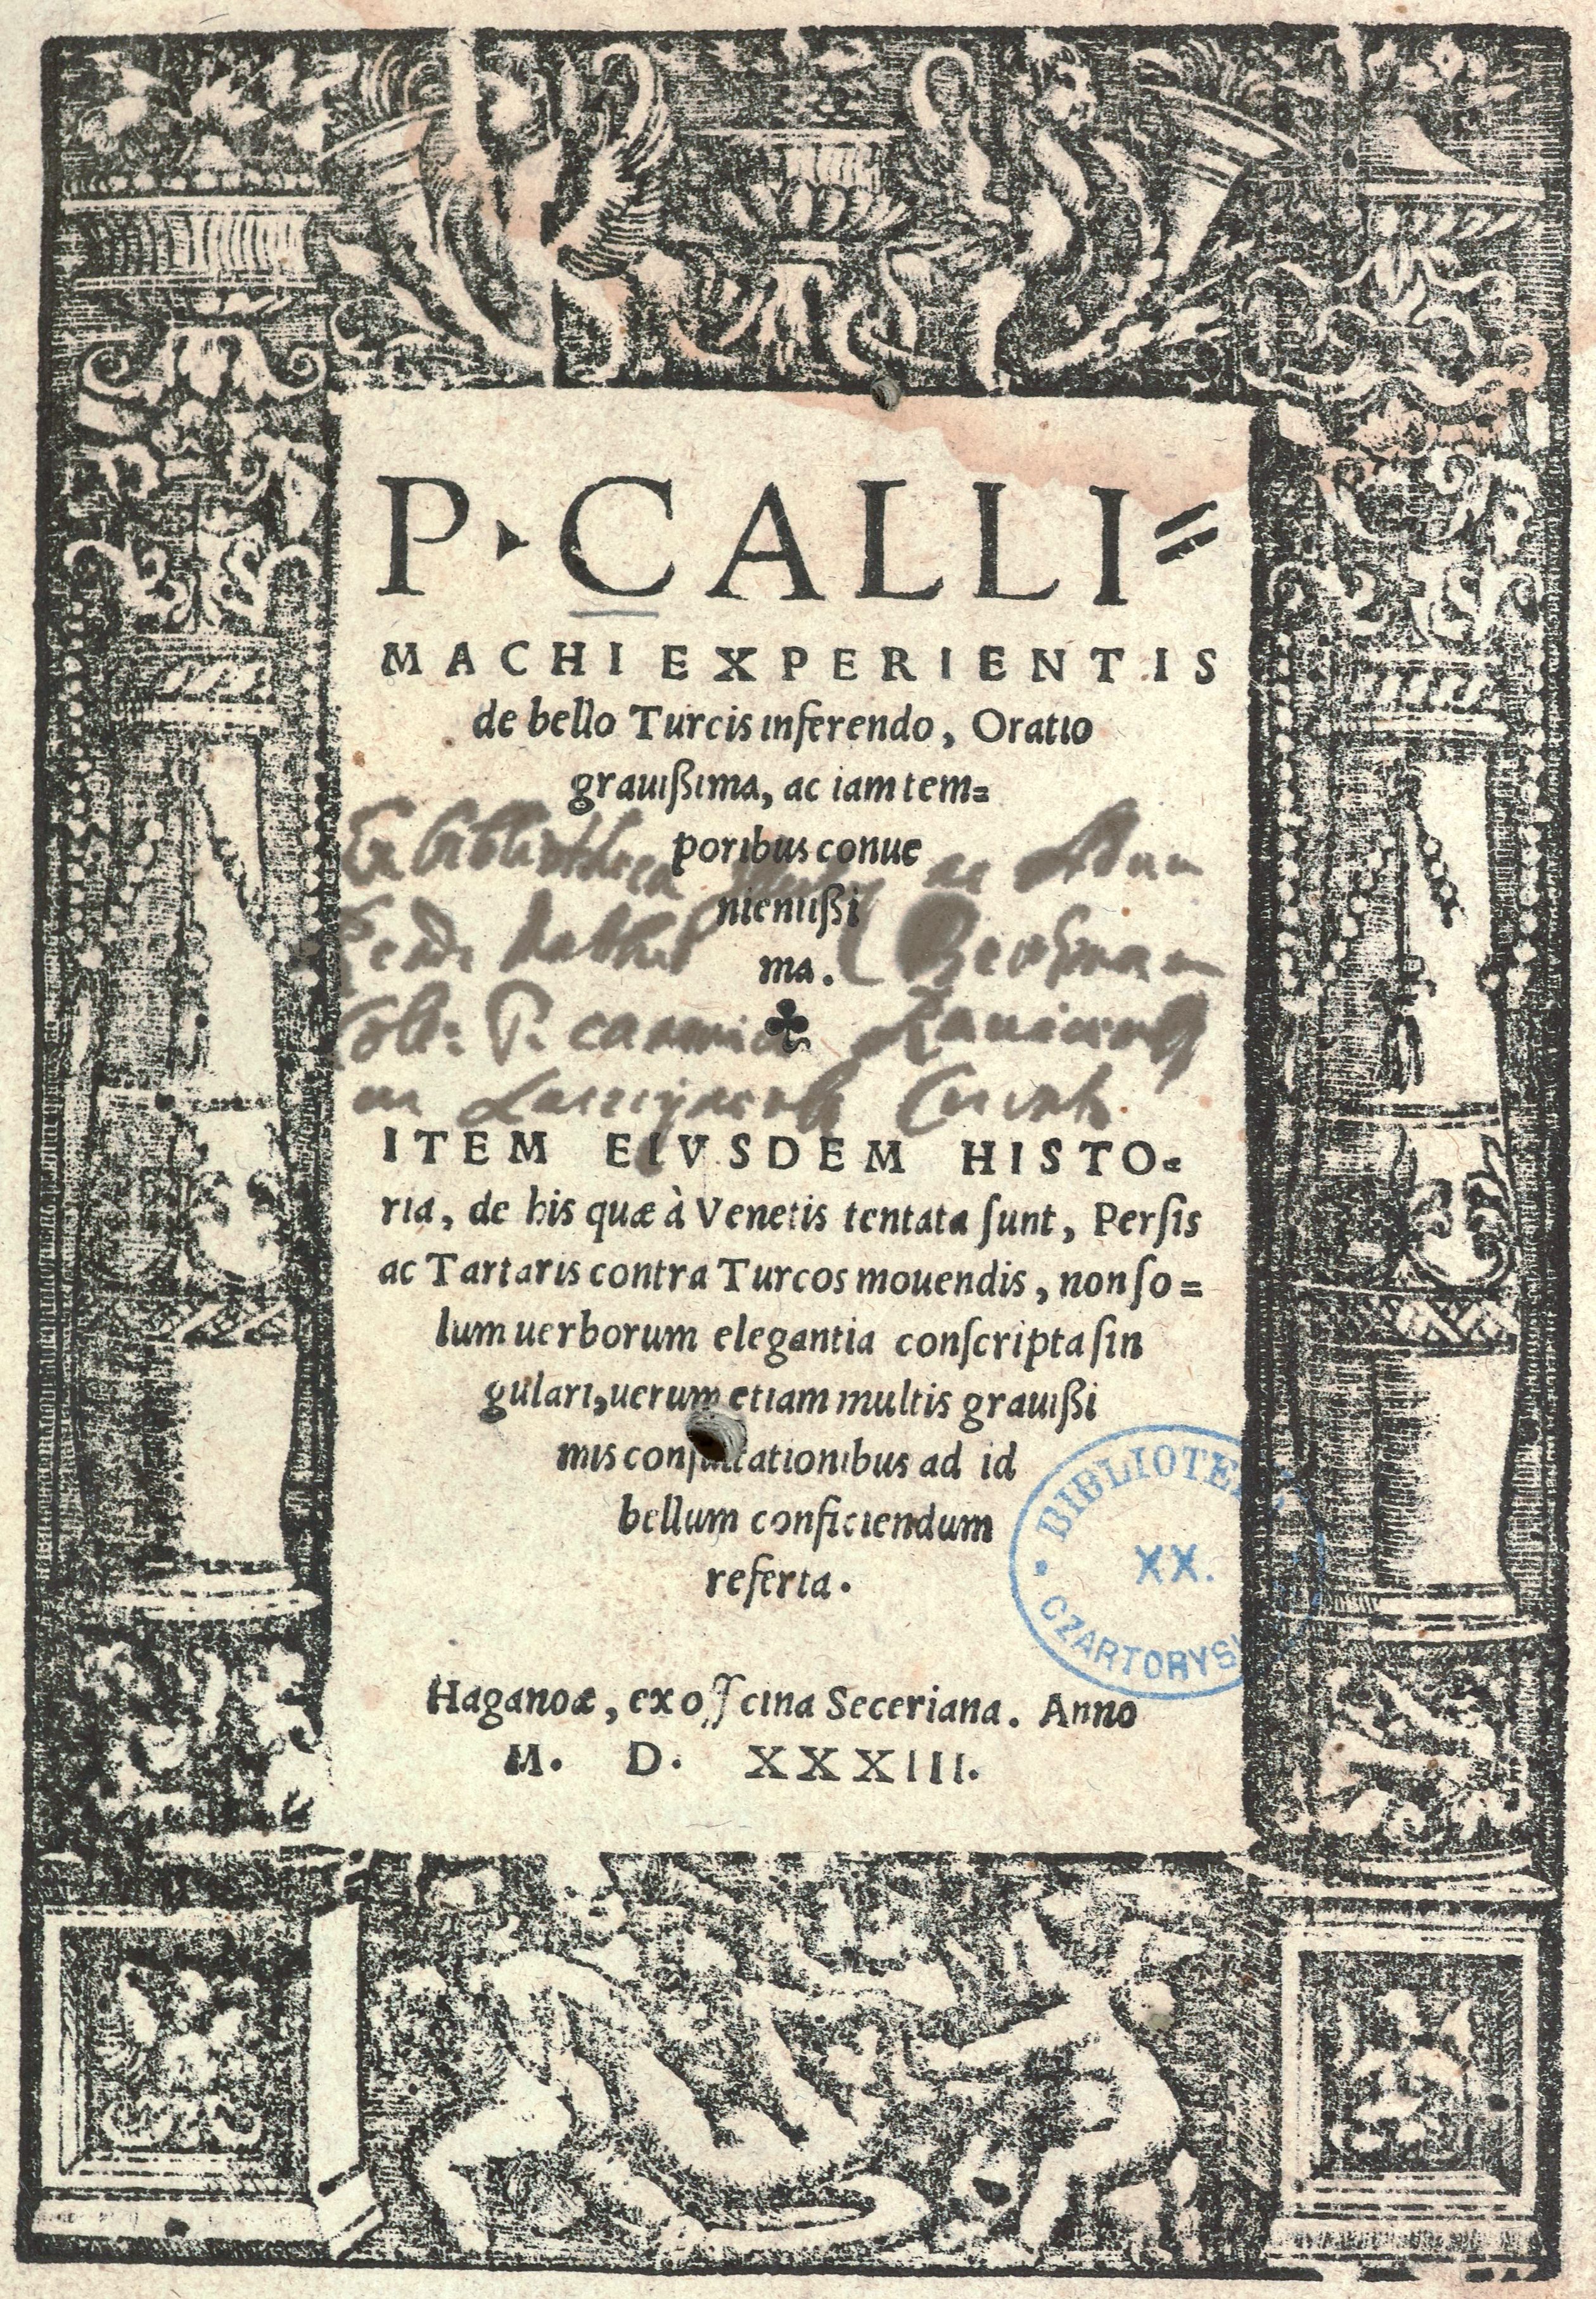 P‣CALLI⸗
MACHI EXPERIENTIS
de bello Turcis inferendo, Oratio
grauißima, ac iam tem⸗
poribus conue
nientißi
ma.
Ex bibliotheca
ITEM EIVSDEM HISTO⸗
ria, de his quæ à Venetis tentata ſunt, Perſis
ac Tartaris contra Turcos mouendis, non ſo⸗
lum uerborum elegantia conſcripta ſin
gulari, uerum etiam multis grauißi
mis conſultationibus ad id
bellum conficiendum
referta.
BIBLIOTE
XX.
CZARTORYS
Haganoæ, ex officina Seceriana. Anno
M. D. XXXIII.